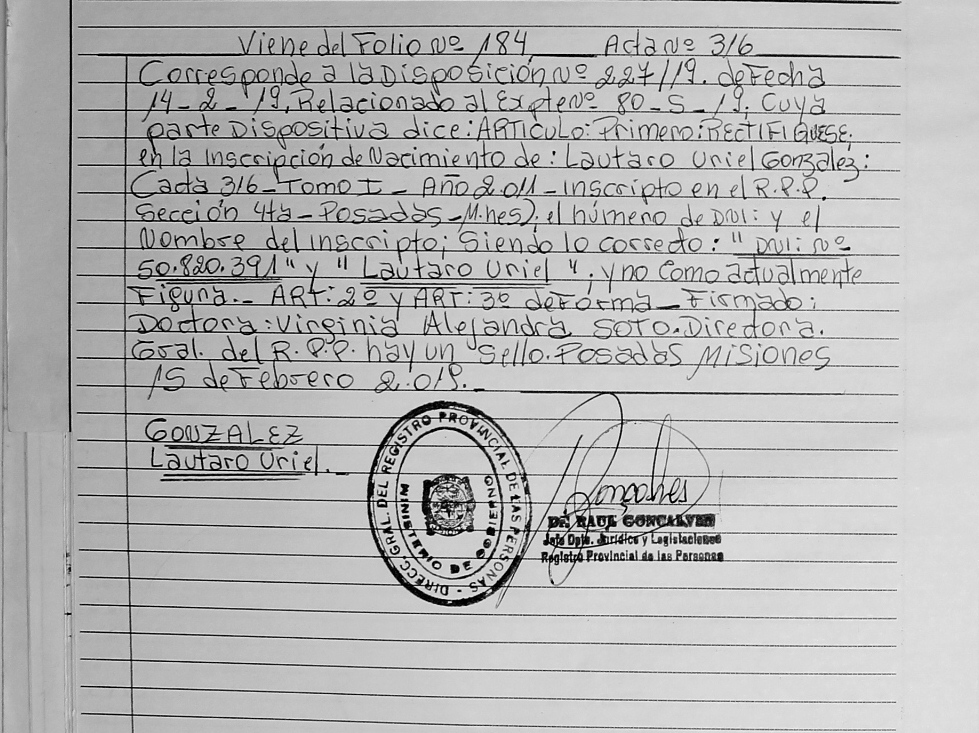 Viene del Folio Nº 184 Acta Nº 316
Corresponde a la Disposición Nº 227/19. de Fecha
14-2-19, Relacionado al Expte Nº 80-S-19, Cuya
parte Dispositiva dice: ARTICULO: Primero: RECTIFIQUESE,
en la Inscripción de Nacimiento de: Lautaro Uriel Gonzalez:
Cada 316-Tomo I- Año 2.011-Inscripto en el R.P.P.
Sección 4ta-Posadas-Mnes), el número de DNI: y el
Nombre del inscripto; Siendo lo correcto: " DNI: Nº
50.820.391" y " Lautaro Uriel "; y no como actualmente
Figura.- ART: 2º y ART: 3º de Forma-Firmado:
Doctora: Virginia Alejandra SOTO. Directora.
Gral. del R.P.P. hay un Sello. Posadas Misiones
15 de Febrero 2.019.-
GONZALEZ
Lautaro Uriel.-
DIRECC. GRAL. DEL REGISTRO PROVINCIAL DE LAS PERSONAS -
MINISTERIO DE GOBIERNO
Goncalves
Dr. RAUL GONCALVES
Jefe Dpto. Jurídico y Legislaciones
Registro Provincial de las Personas